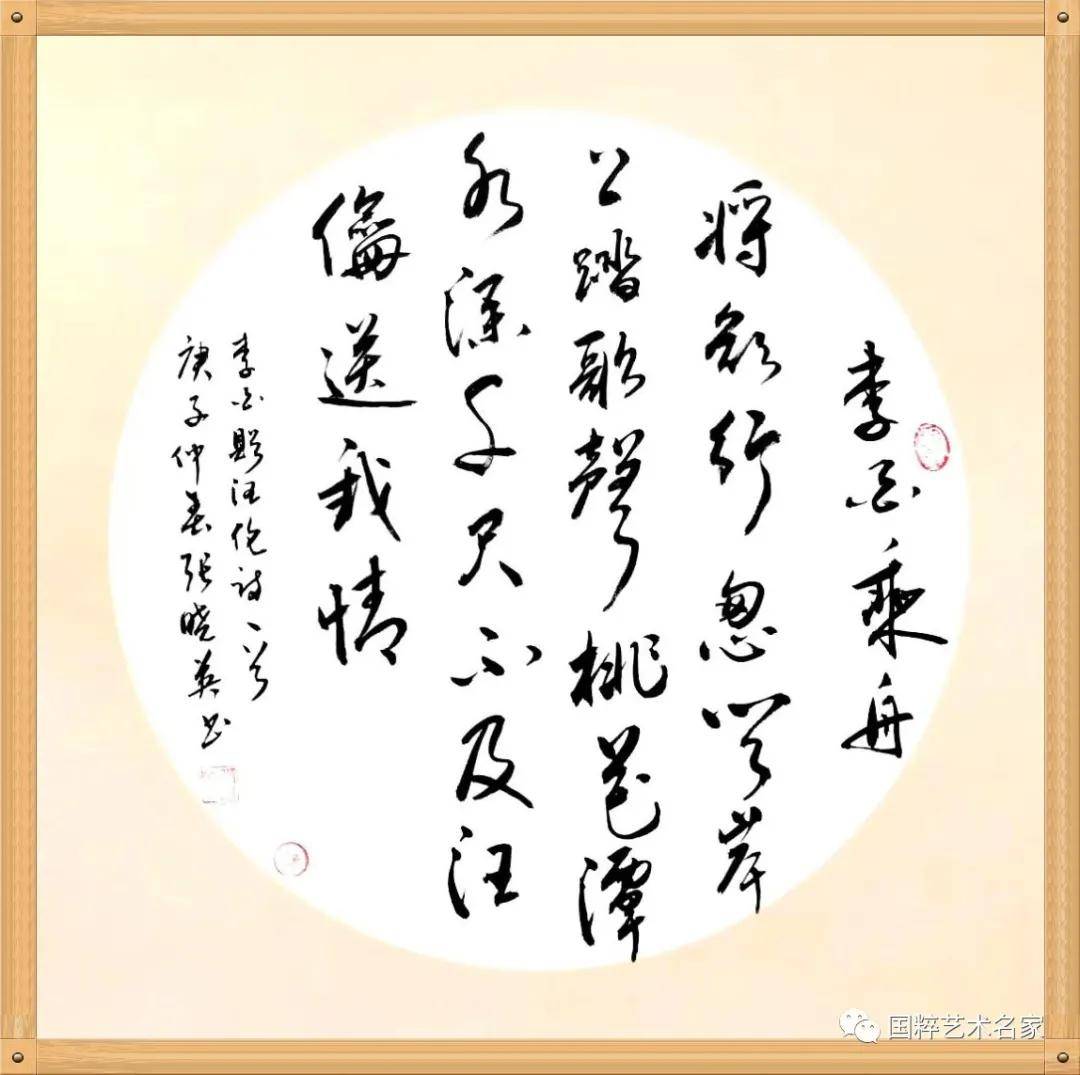 李白乘舟
将欲行忽闻岸
上踏歌聲桃花潭
水深千尺不及汪
倫送我情
李白赠汪伦诗一首
庚子仲春张晓英书
国粹艺术名家